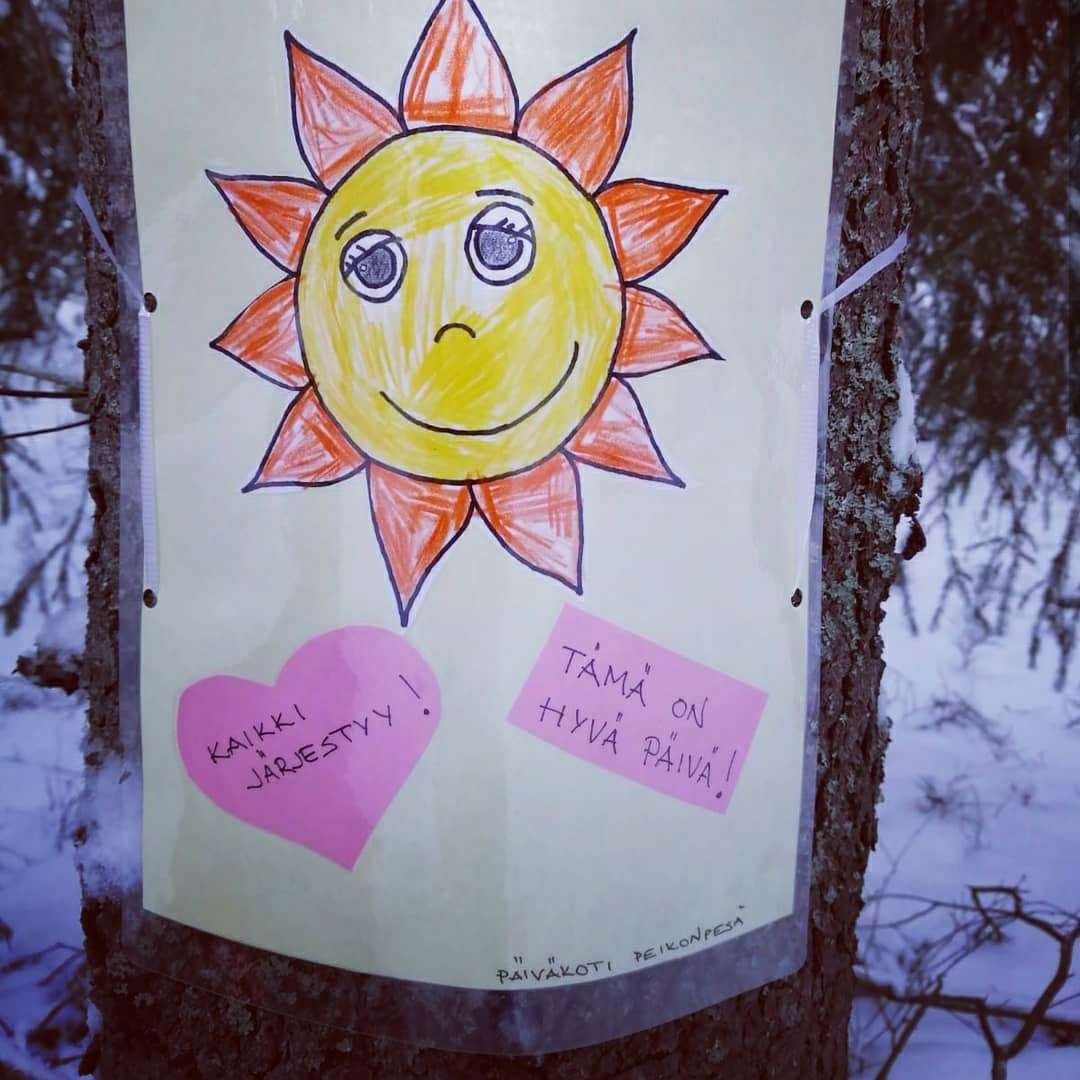 KAIKKI
JÄRJESTYY!
TÄMÄ ON
HYVÄ PÄIVÄ!
PÄIVÄKOTI PEIKONPESÄ